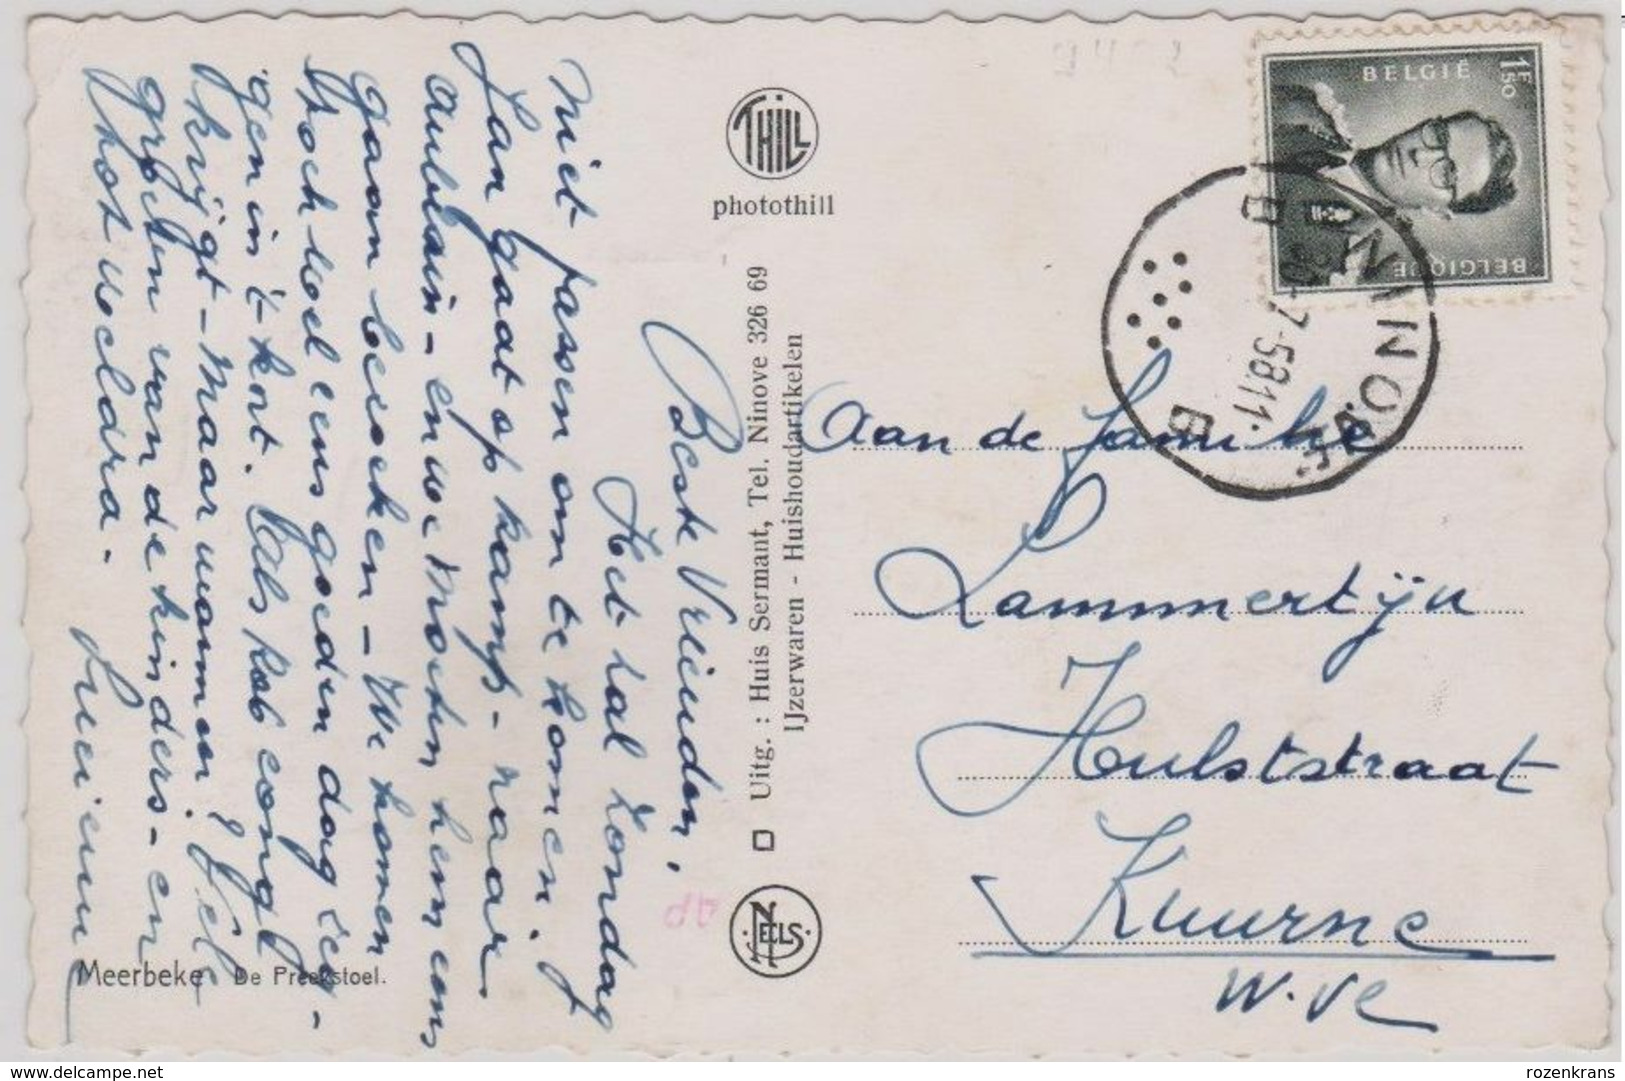 Beste Vrienden,
Het zal Zondag
niet passen om te komen.
Jan gaat op kamp - naar
- en we moeten hem eens
gaan bezoeken - We komen
toch wel eens goeden dag zeg-
gen in 't kort. Als hab congé
krijgt - Maar wanneer? Vele
groeten van de kinders - en
tot weldra -
Meerbeke De Preekstoel.
THILL
photothill
Uitg. : Huis Sermant, Tel. Ninove 326 69
IJzerwaren - Huishoudartikelen
NELS
4P
BELGIË
1F50
BELGIQUE
NINOVE
-7-58.11.
B B
Aan de familie
Lammertijn
Hulststraat
Kuurne
W. Vl
rozenkrans
delcampe.net